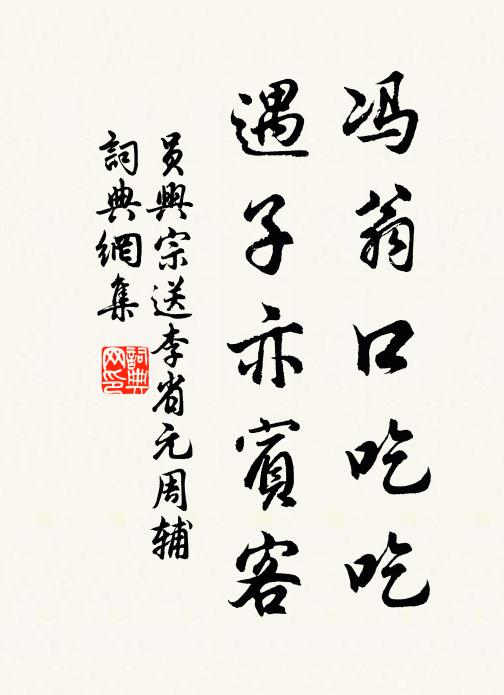 冯翁口吃吃
遇子亦賓客
員興宗送李省元周輔
詞典網集
詞典网印